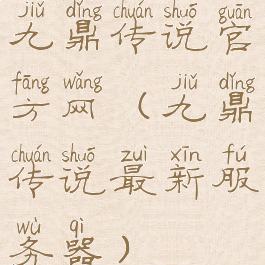 jiǔ dǐng chuán shuō guān
九鼎传说官
fāng wǎng jiǔ dǐng
方网（九鼎
chuán shuō zuì xīn fú
传说最新服
wù qì
务器）